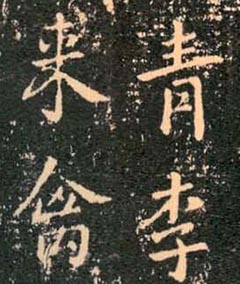 青李
来禽